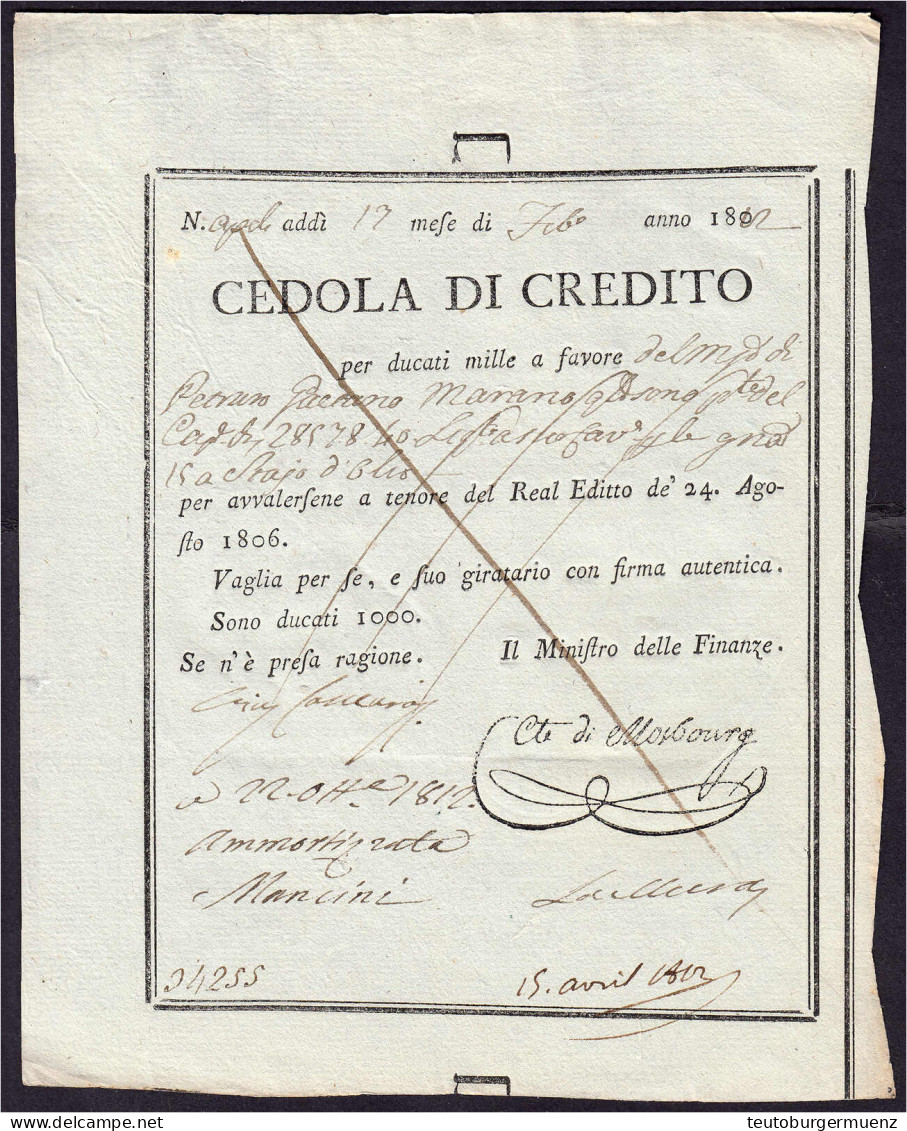 N.apoli addì 17 meſe di Febº anno 1812
CEDOLA DI CREDITO
per ducati mille a favore del di
Petraro Gaetano Marano del
28578.40
15 a Stajo d'Olio
per avvalerſene a tenore del Real Editto de' 24. Ago-
ſto 1806.
Vaglia per ſe, e ſuo giratario con firma autentica.
Sono ducati 1000.
Se n'è preſa ragione. Il Miniſtro delle Finanze.
Cte di Mosbourg
a 22 Ott.e 1812.
Ammortizzata
Mancini
34255 15. avril 1812
DELCAMPE.NET teutoburgermuenz